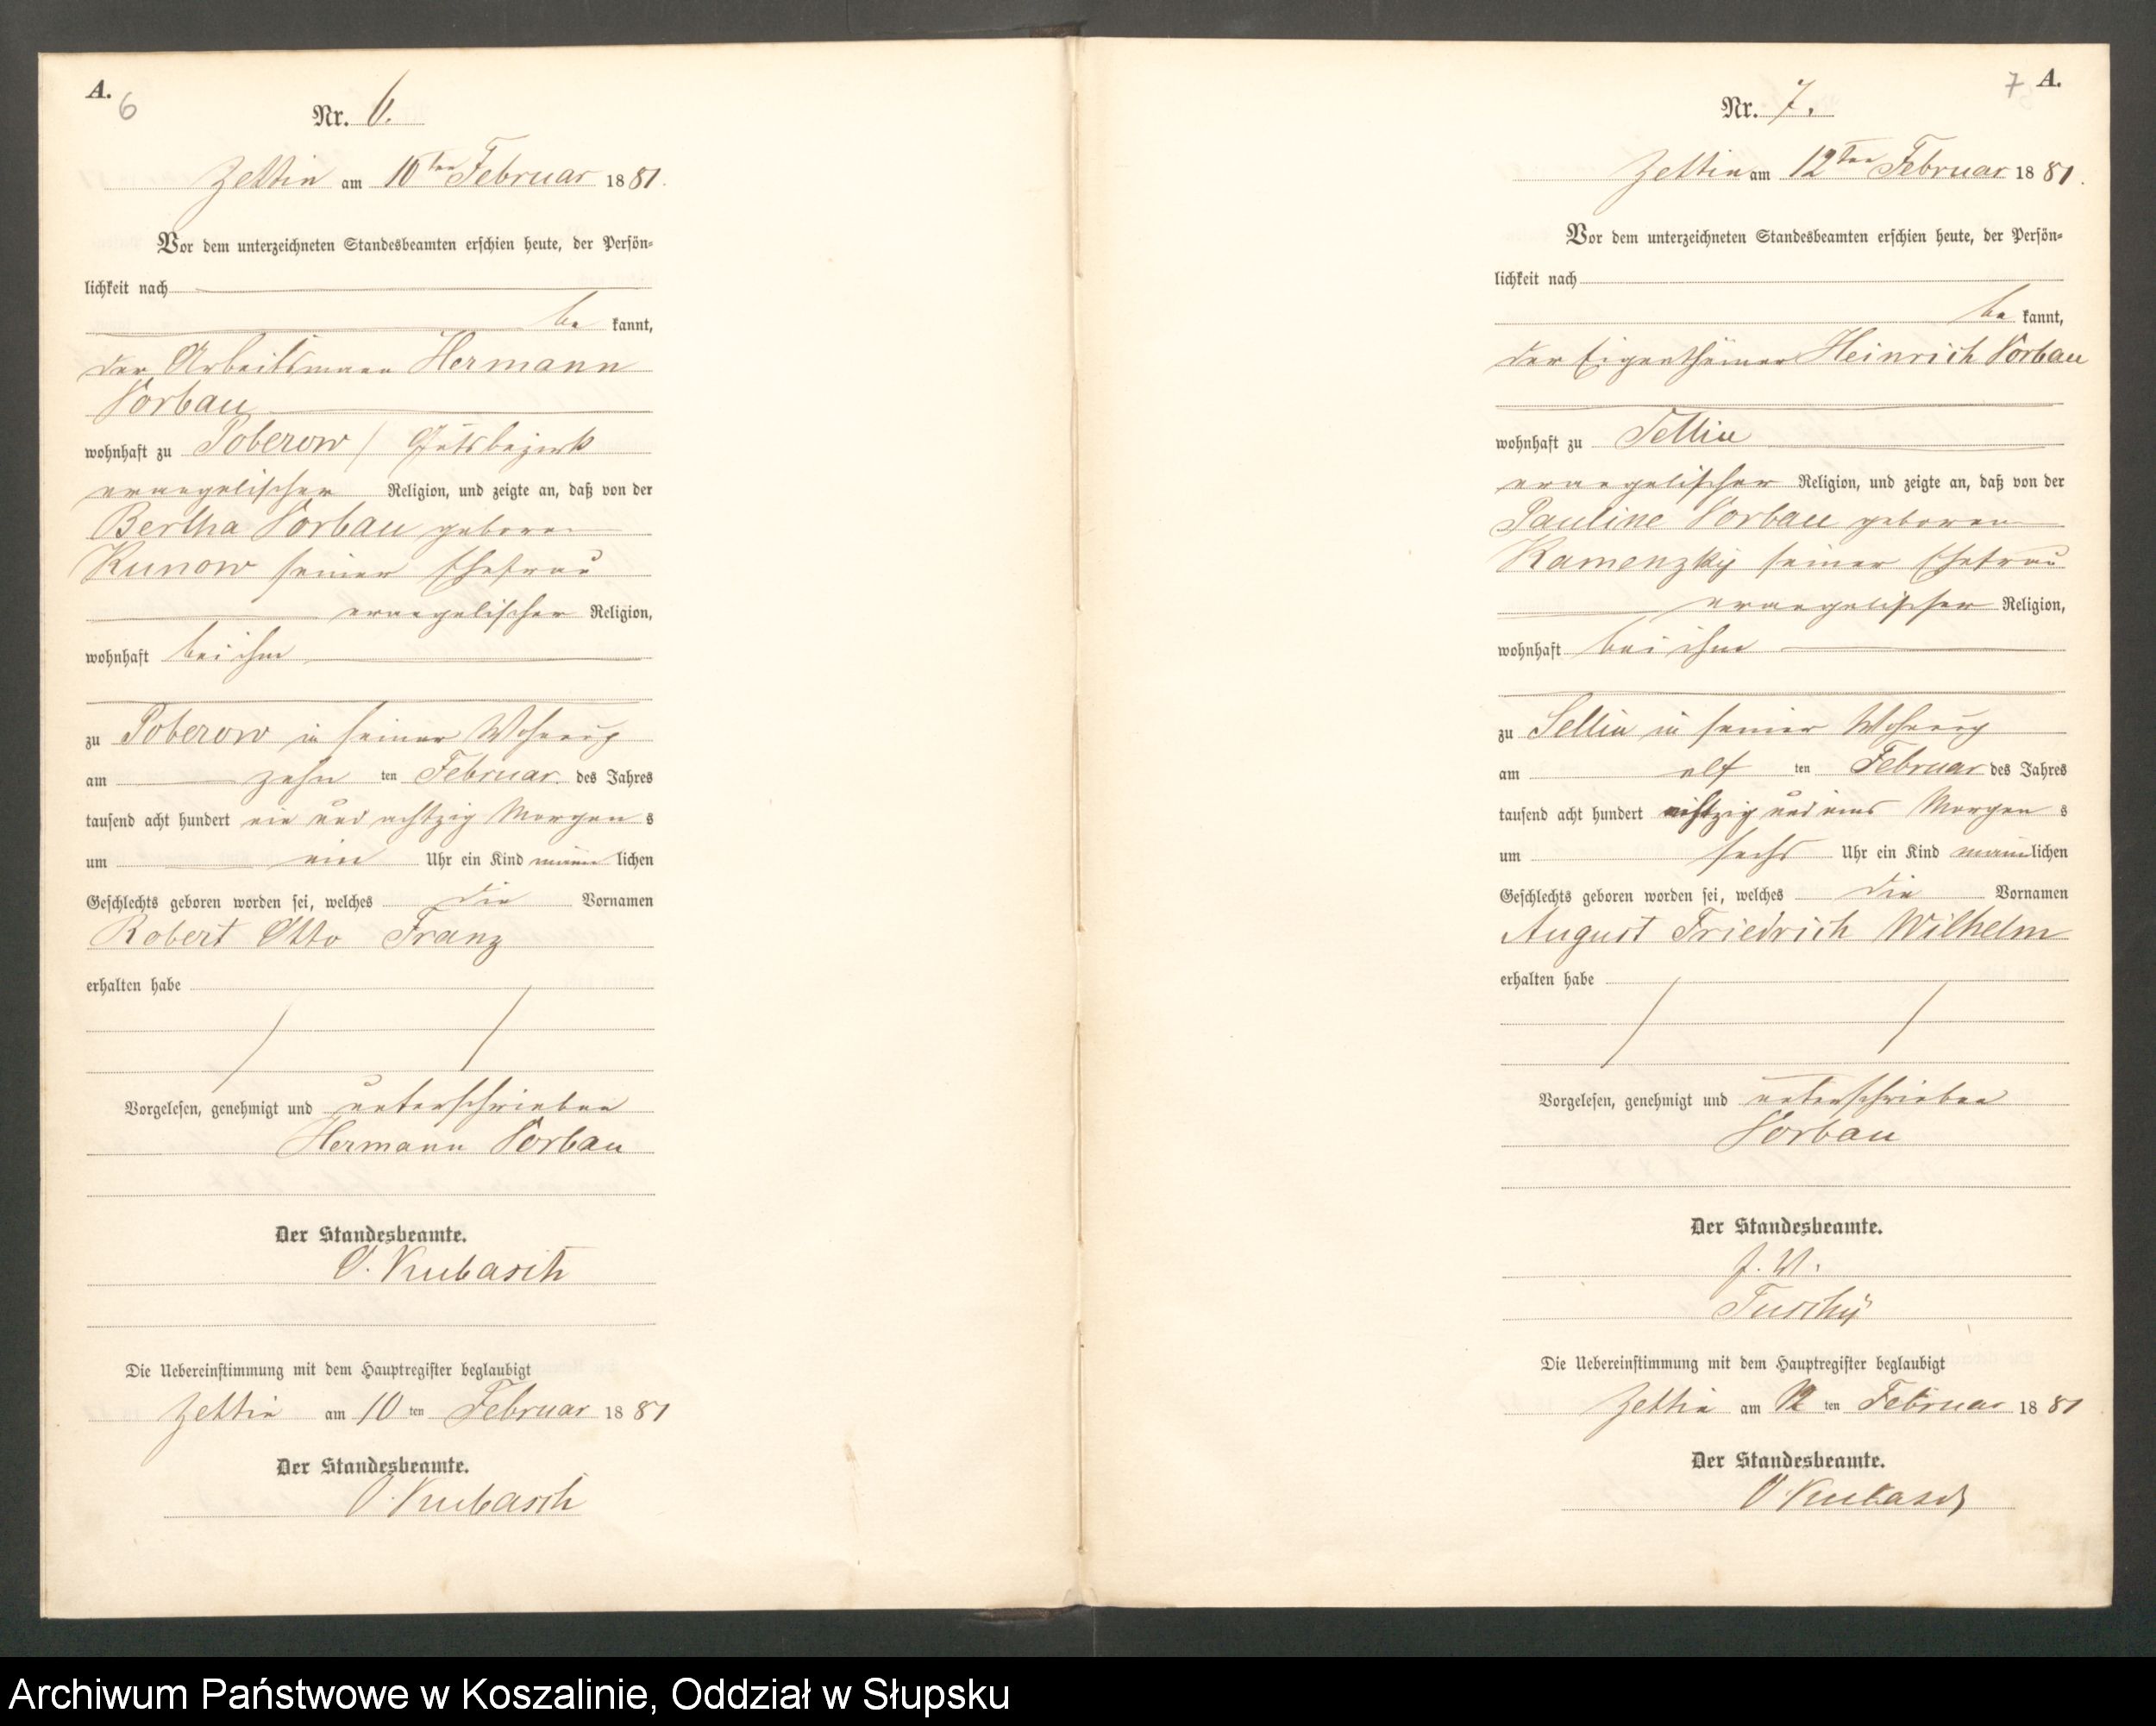 A.
6
Nr. 6.
Zettin am 10ten Februar 1881.
Vor dem unterzeichneten Standesbeamten erschien heute, der Persön-
lichkeit nach
be kannt,
der Arbeitsmann Hermann
Vorbau
wohnhaft zu Poberow / Gutsbezirk
evangelischer Religion, und zeigte an, daß von der
Bertha Vorbau geboren
Kunow seiner Ehefrau
evangelischer Religion,
wohnhaft bei ihm
zu Poberow in seiner Wohnung
am zehn ten Februar des Jahres
tausend acht hundert ein und achtzig Morgen s
um ein Uhr ein Kind männ lichen
Geschlechts geboren worden sei, welches die Vornamen
Robert Otto Franz
erhalten habe
Vorgelesen, genehmigt und unterschrieben
Hermann Vorbau
Der Standesbeamte.
O. Kubasch
Die Uebereinstimmung mit dem Hauptregister beglaubigt
Zettin am 10 ten Februar 1881
Der Standesbeamte.
O. Kubasch
7 A.
Nr. 7.
Zettin am 12ten Februar 1881.
Vor dem unterzeichneten Standesbeamten erschien heute, der Persön-
lichkeit nach
be kannt,
der Eigenthümer Heinrich Vorbau
wohnhaft zu Sellin
evangelischer Religion, und zeigte an, daß von der
Pauline Vorbau geboren
Kamenzky seiner Ehefrau
evangelischer Religion,
wohnhaft bei ihm
zu Sellin in seiner Wohnung
am elf ten Februar des Jahres
tausend acht hundert achtzig und eins Morgen s
um sechs Uhr ein Kind männlichen
Geschlechts geboren worden sei, welches die Vornamen
August Friedrich Wilhelm
erhalten habe
Vorgelesen, genehmigt und unterschrieben
Vorbau
Der Standesbeamte.
Die Uebereinstimmung mit dem Hauptregister beglaubigt
Zettin am 12 ten Februar 1881
Der Standesbeamte.
O. Kubasch
Archiwum Państwowe w Koszalinie, Oddział w Słupsku